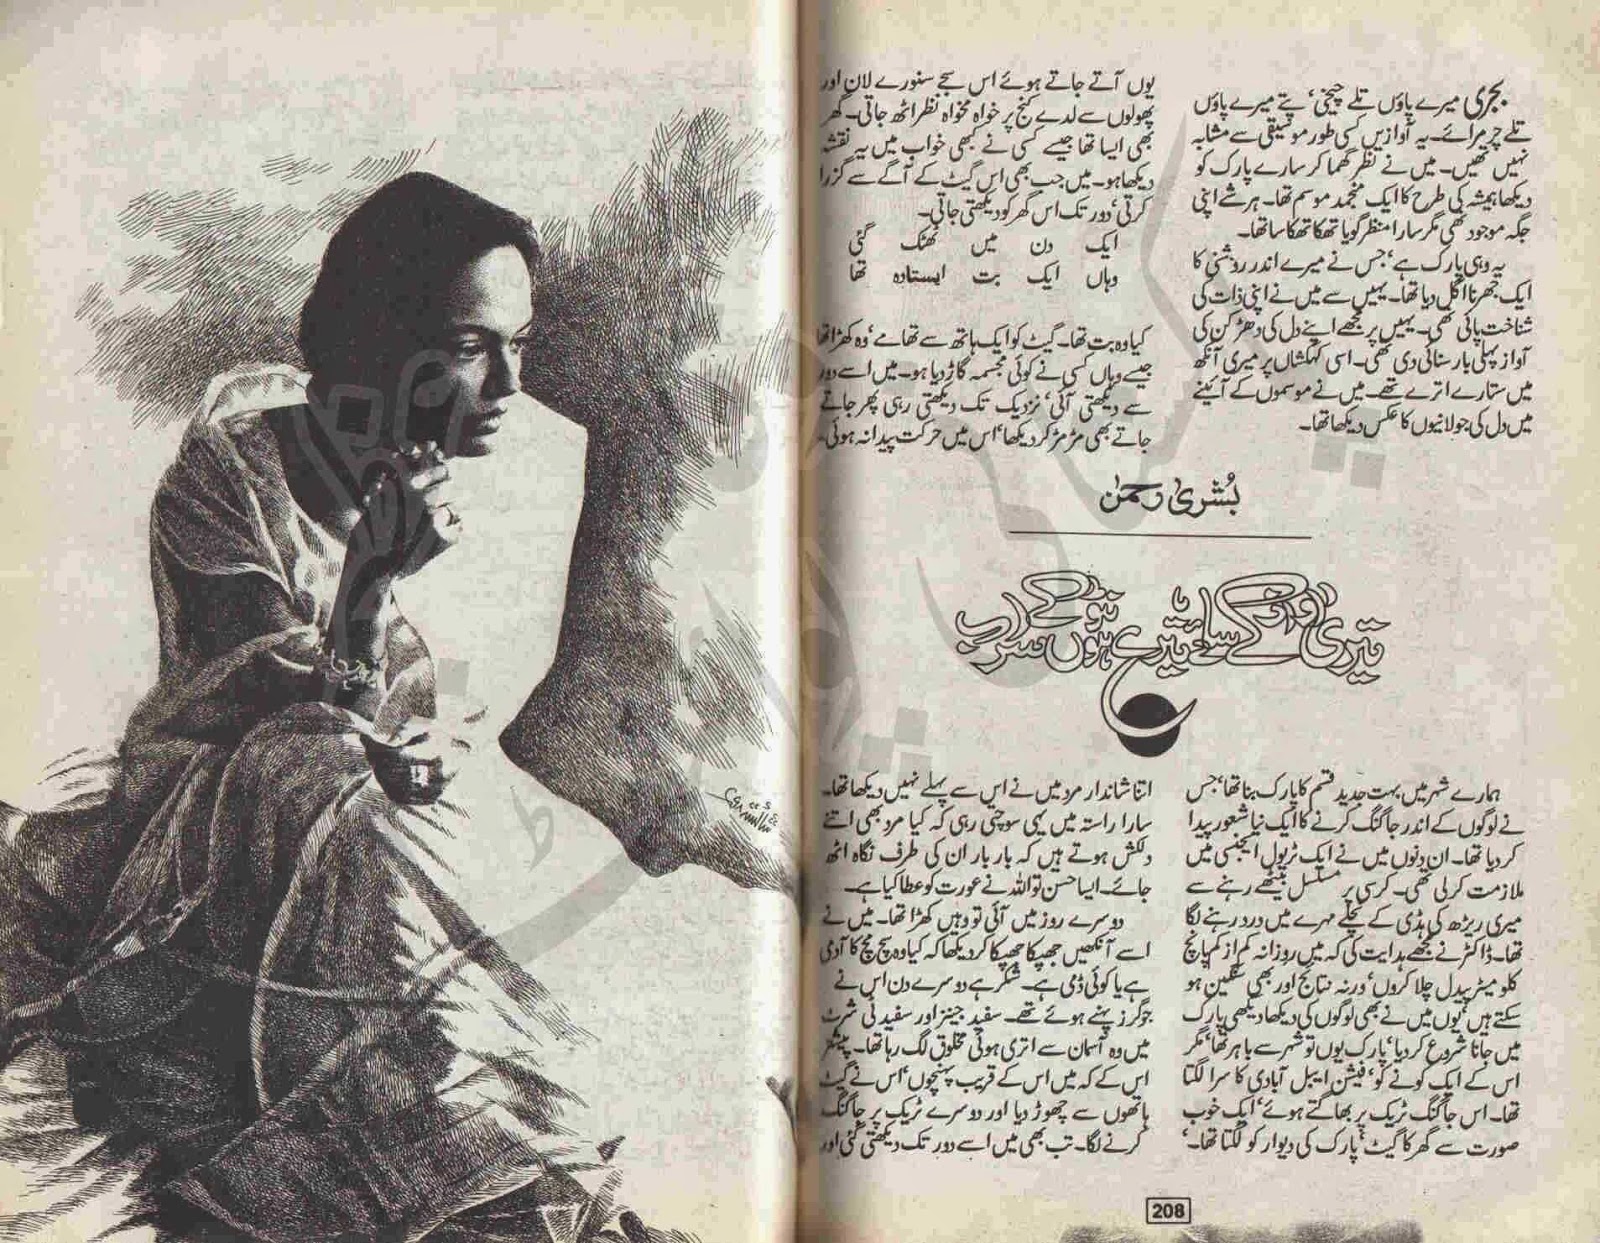 بجری میرے پاؤں تلے چیخی، پتے میرے پاؤں
تلے چرمرائے۔ یہ آوازیں کسی طور موسیقی سے مشابہ
نہیں تھیں۔ میں نے نظر گھما کر سارے پارک کو
دیکھا ہمیشہ کی طرح کا ایک منجمد موسم تھا۔ ہر شے اپنی
جگہ موجود تھی مگر سارا منظر گویا تھکا تھکا سا تھا۔
یہ وہی پارک ہے، جس نے میرے اندر روشنی کا
ایک جھرنا اگل دیا تھا۔ یہیں سے میں نے اپنی ذات کی
شناخت پائی تھی۔ یہیں پر مجھے اپنے دل کی دھڑکن کی
آواز پہلی بار سنائی دی تھی۔ اسی کہکشاں پر میری آنکھ
میں ستارے اترے تھے۔ میں نے موسموں کے آئینے
میں دل کی جولانیوں کا عکس دیکھا تھا۔
یوں آتے جاتے ہوئے اس سجے سنورے لان اور
پھولوں سے لدے کنج پر خواہ مخواہ نظر اٹھ جاتی۔ گھر
بھی ایسا تھا جیسے کسی نے کبھی خواب میں یہ نقشہ
دیکھا ہو۔ میں جب بھی اس گیٹ کے آگے سے گزرا
کرتی، دور تک اس گھر کو دیکھتی جاتی۔
ایک دن میں ٹھٹک گئی
وہاں ایک بت ایستادہ تھا
کیا وہ بت تھا۔ گیٹ کو ایک ہاتھ سے تھامے، وہ کھڑا تھا
جیسے وہاں کسی نے کوئی مجسمہ گاڑ دیا ہو۔ میں اسے دور
سے دیکھتی آئی، نزدیک تک دیکھتی رہی پھر جاتے
جاتے بھی مڑ مڑ کر دیکھا، اس میں حرکت پیدا نہ ہوئی۔
بُشریٰ رحمٰن
تیری آواز کے سائے تیرے ہونٹوں کے سراب
ہمارے شہر میں بہت جدید قسم کا پارک بنا تھا، جس
نے لوگوں کے اندر جاگنگ کرنے کا ایک نیا شعور پیدا
کر دیا تھا۔ ان دنوں میں نے ایک ٹریول ایجنسی میں
ملازمت کر لی تھی۔ کرسی پر مسلسل بیٹھے رہنے سے
میری ریڑھ کی ہڈی کے نچلے مہرے میں درد رہنے لگا
تھا۔ ڈاکٹر نے مجھے ہدایت کی کہ میں روزانہ کم از کم پانچ
کلو میٹر پیدل چلا کروں، ورنہ نتائج اور بھی سنگین ہو
سکتے ہیں، یوں میں نے بھی لوگوں کی دیکھا دیکھی پارک
میں جانا شروع کر دیا، پارک یوں تو شہر سے باہر تھا، مگر
اس کے ایک کونے کو، فیشن ایبل آبادی کا سرا لگتا
تھا۔ اس جاگنگ ٹریک پر بھاگتے ہوئے، ایک خوب
صورت سے گھر کا گیٹ، پارک کی دیوار کو لگتا تھا۔
اتنا شاندار مرد میں نے اس سے پہلے نہیں دیکھا تھا۔
سارا راستہ میں یہی سوچتی رہی کہ کیا مرد بھی اتنے
دلکش ہوتے ہیں کہ بار بار ان کی طرف نگاہ اٹھ
جائے۔ ایسا حسن تو اللہ نے عورت کو عطا کیا ہے۔
دوسرے روز میں آئی تو وہیں کھڑا تھا۔ میں نے
اسے آنکھیں جھپکا جھپکا کر دیکھا کہ کیا وہ سچ مچ کا آدمی
ہے یا کوئی ڈمی ہے۔ شکر ہے دوسرے دن اس نے
جوگرز پہنے ہوئے تھے۔ سفید جینز اور سفید ٹی شرٹ
میں وہ آسمان سے اتری ہوئی مخلوق لگ رہا تھا۔ پیشتر
اس کے کہ میں اس کے قریب پہنچوں، اس نے گیٹ
ہاتھوں سے چھوڑ دیا اور دوسرے ٹریک پر جاگنگ
کرنے لگا۔ تب بھی میں اسے دور تک دیکھتی گئی اور
208